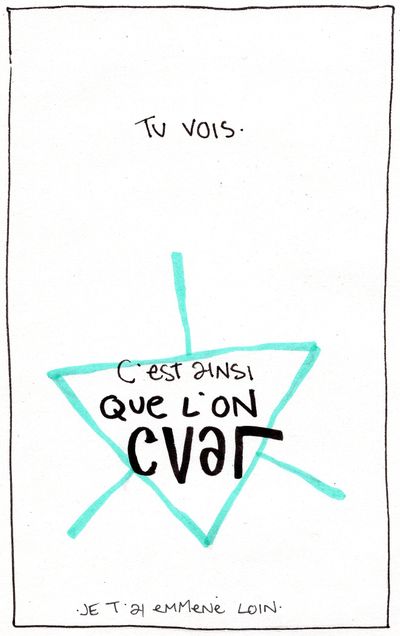 TU VOIS.
C'EST AINSI
QUE L'ON
CVAR
.JE T'AI EMMENÉ LOIN.